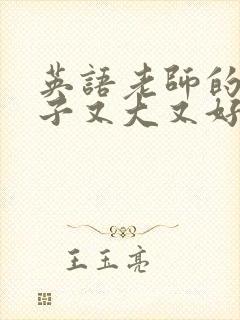 英語老師的
子又大又好
王玉亮